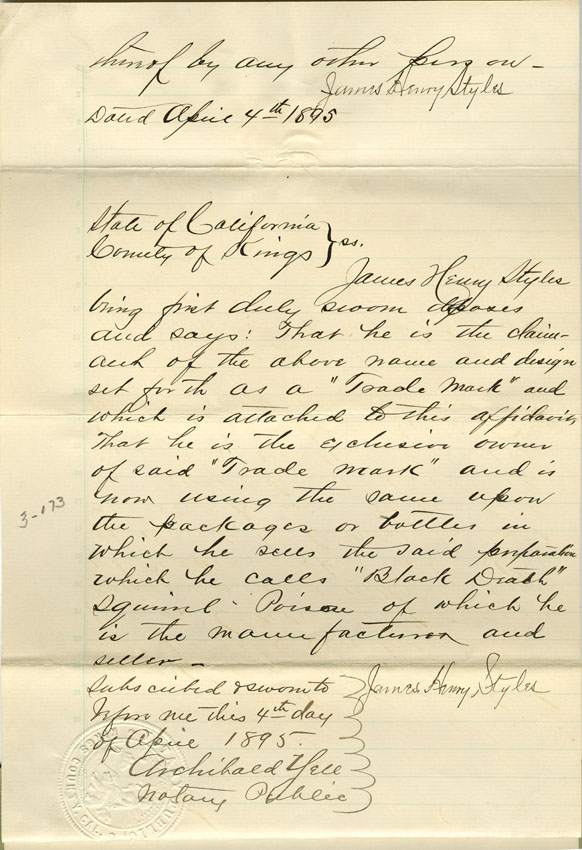 thereof by any other person -
James Henry Styles
Dated April 4th 1895
State of California
County of Kings } ss.
James Henry Styles
being first duly sworn deposes
and says: That he is the claim-
ant of the above name and design
set forth as a "Trade Mark" and
which is attached to this affidavit
That he is the exclusive owner
of said "Trade Mark" and is
now using the same upon
the packages or bottles in
which he sells the said preparation
which he calls "Black Death"
Squirrel Poison of which he
is the manufacturer and
seller -
James Henry Styles
Subscribed & sworn to
before me this 4th day
of April 1895.
Archibald Yell
Notary Public
3-173